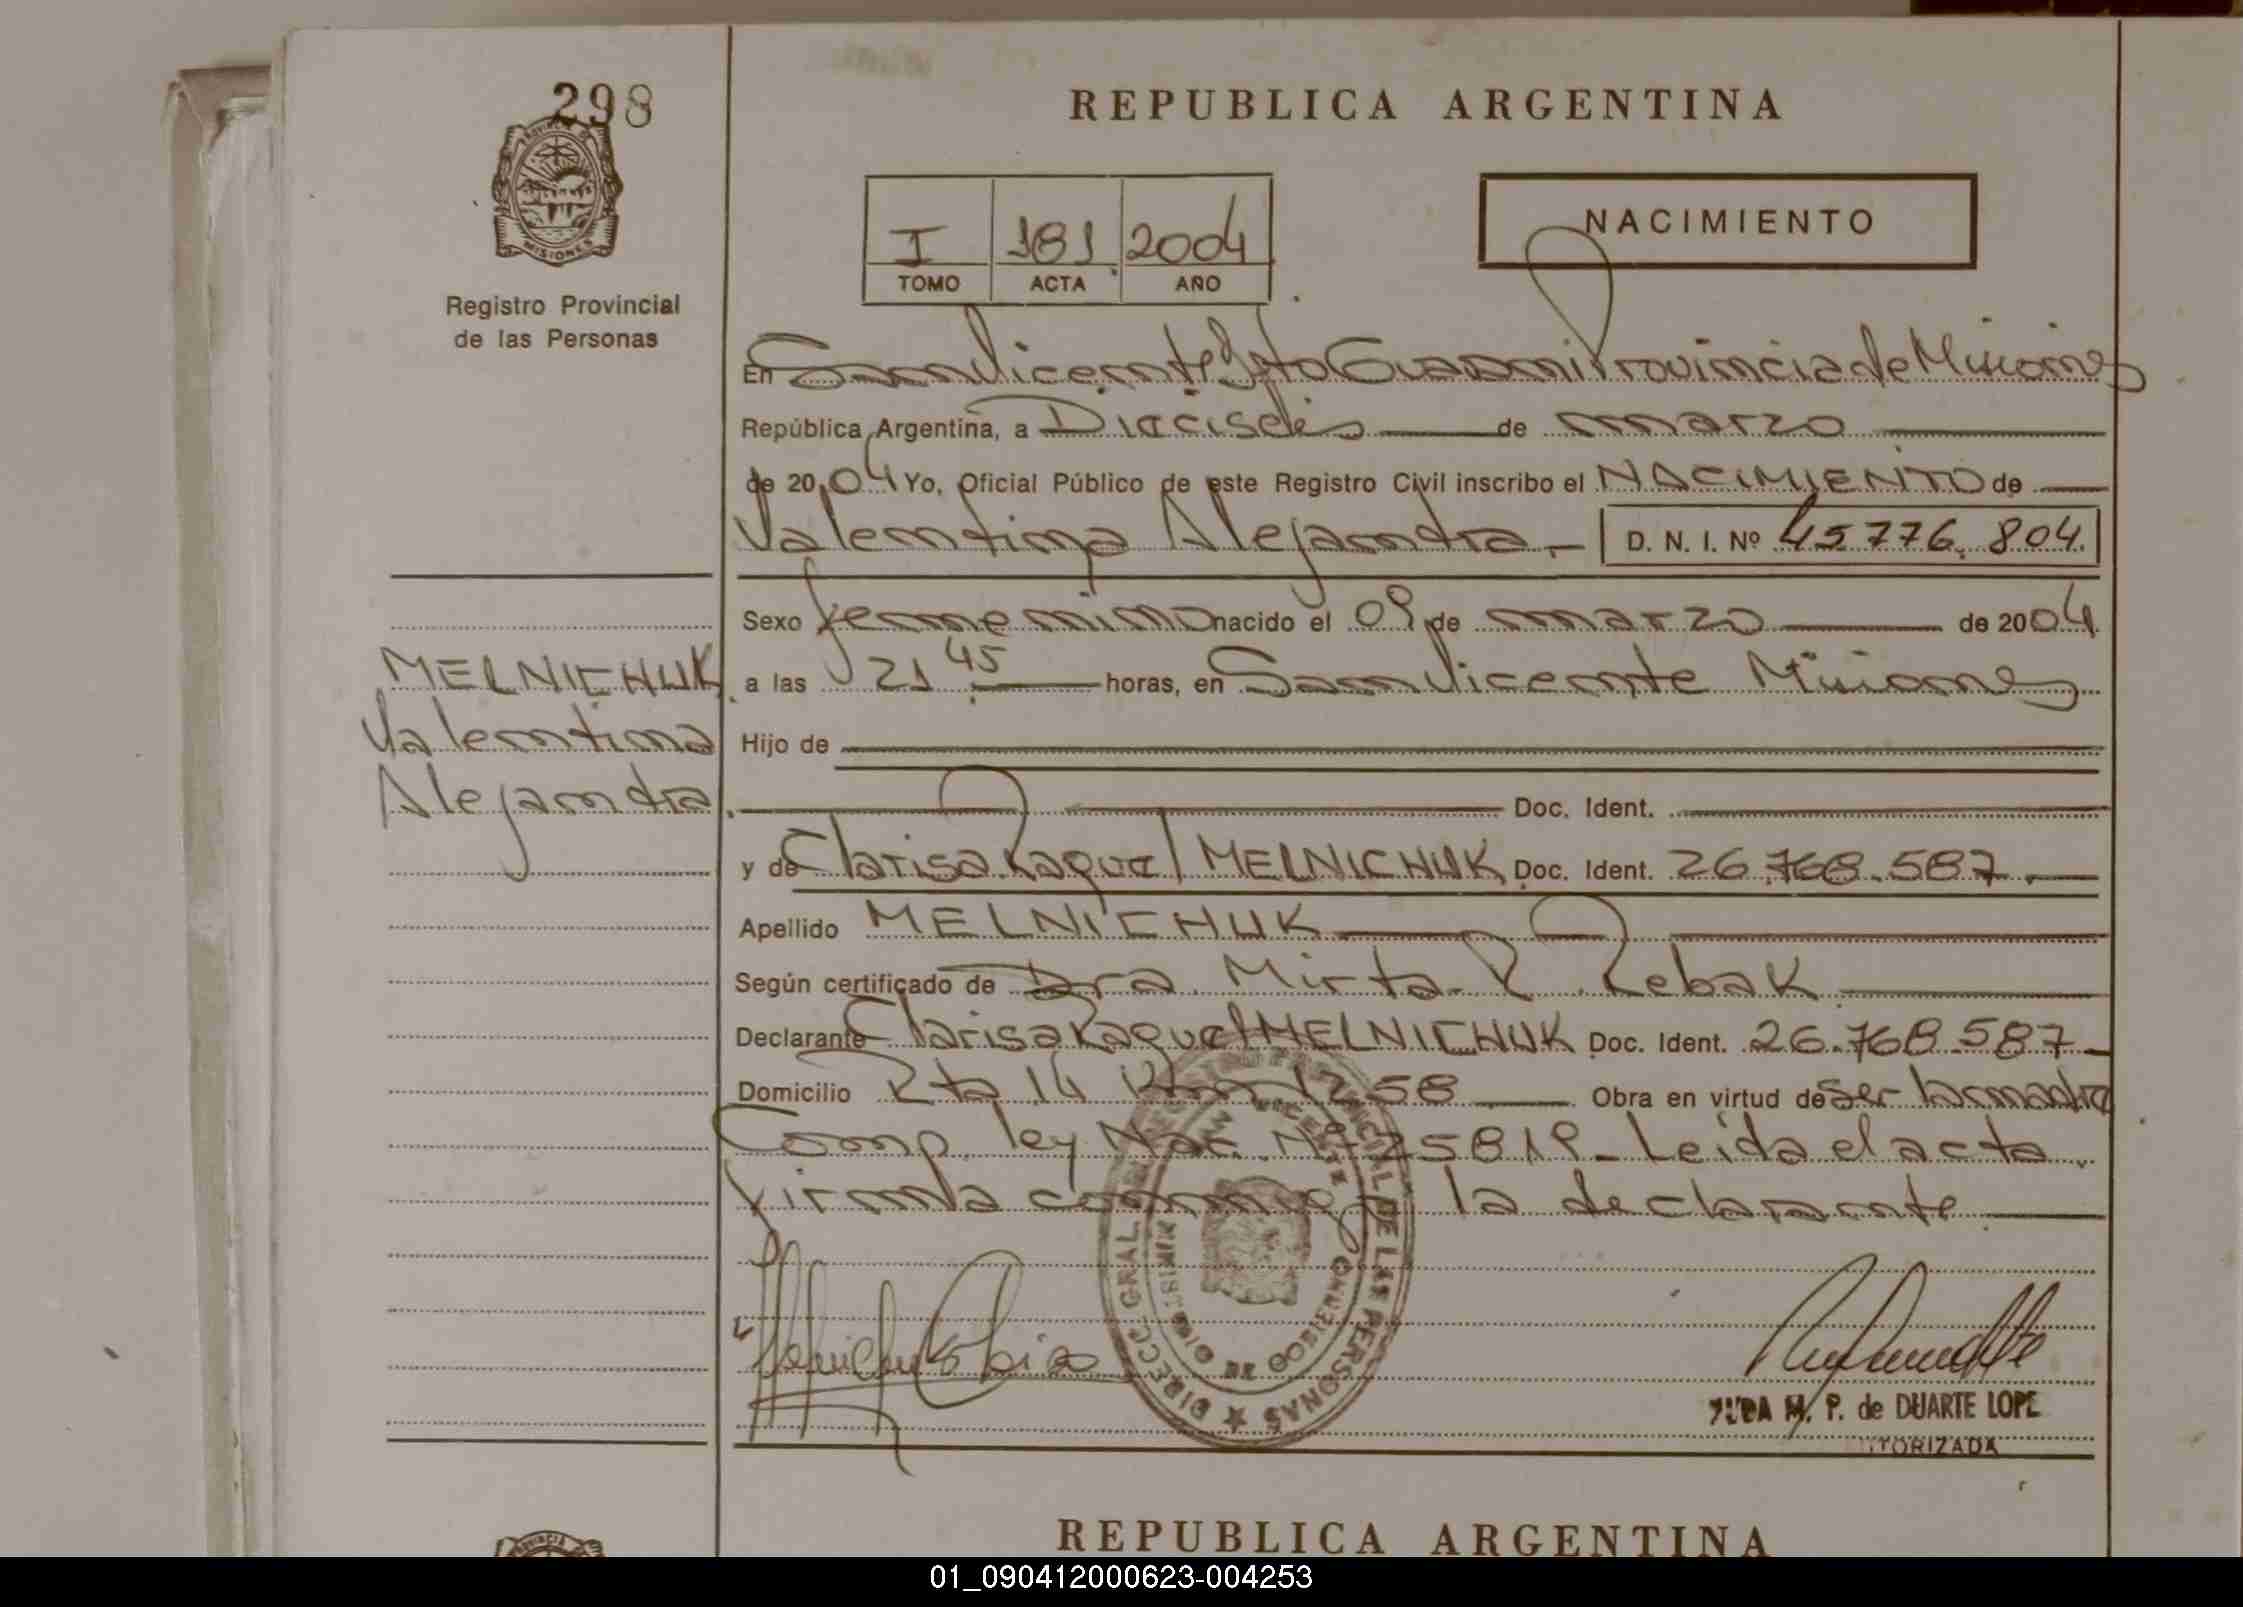 298
REPUBLICA ARGENTINA
PROVINCIA DE
MISIONES
Registro Provincial
de las Personas
I 181 2004
TOMO ACTA AÑO
NACIMIENTO
En San Vicente Dpto Guarani Provincia de Misiones
República Argentina, a Dieciseis de marzo
de 2004 Yo, Oficial Público de este Registro Civil inscribo el NACIMIENTO de
Valentina Alejandra.- D. N. I. Nº 45776.804.
Sexo femenino nacido el 09 de marzo de 2004
a las 21 45 horas, en San Vicente Misiones
MELNICHUK
Valentina
Alejandra.
Hijo de
Doc. Ident.
y de Clarisa Raquel MELNICHUK Doc. Ident. 26.768.587.
Apellido MELNICHUK
Según certificado de Dra. Mirta R. Rebak
Declarante Clarisa Raquel MELNICHUK Doc. Ident. 26.768.587-
Domicilio Rta 14 Km 1258 Obra en virtud de Ser la madre
Comp. ley Nac. Nº 25819- Leida el acta
firma conmigo la declarante
DIRECC. GRAL. DEL REGISTRO PROVINCIAL DE LAS PERSONAS
SAN VICENTE
MINIST. DE GOBIERNO
M. P. de DUARTE LOPE
AUTORIZADA
REPUBLICA ARGENTINA
01_090412000623-004253